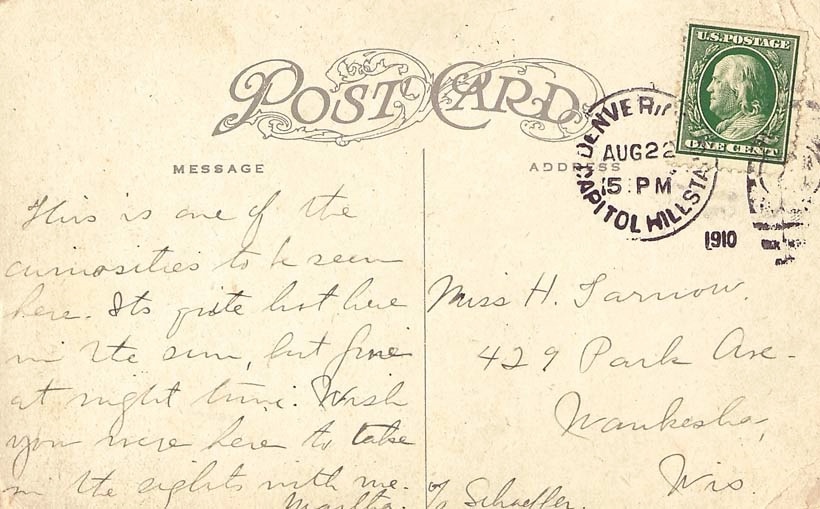 POST CARD
U.S. POSTAGE
ONE CENT
DENVER
AUG 22
5 PM
CAPITOL HILL STA.
1910
MESSAGE
ADDRESS
This is one of the
curiosities to be seen
here. Its quite hot here
in the sun, but fine
at night time. Wish
you were here to take
in the sights with me.
Martha.
Miss H. Tarnow.
429 Park Ave.
Waukesha,
Wis.
% Schaeffer.